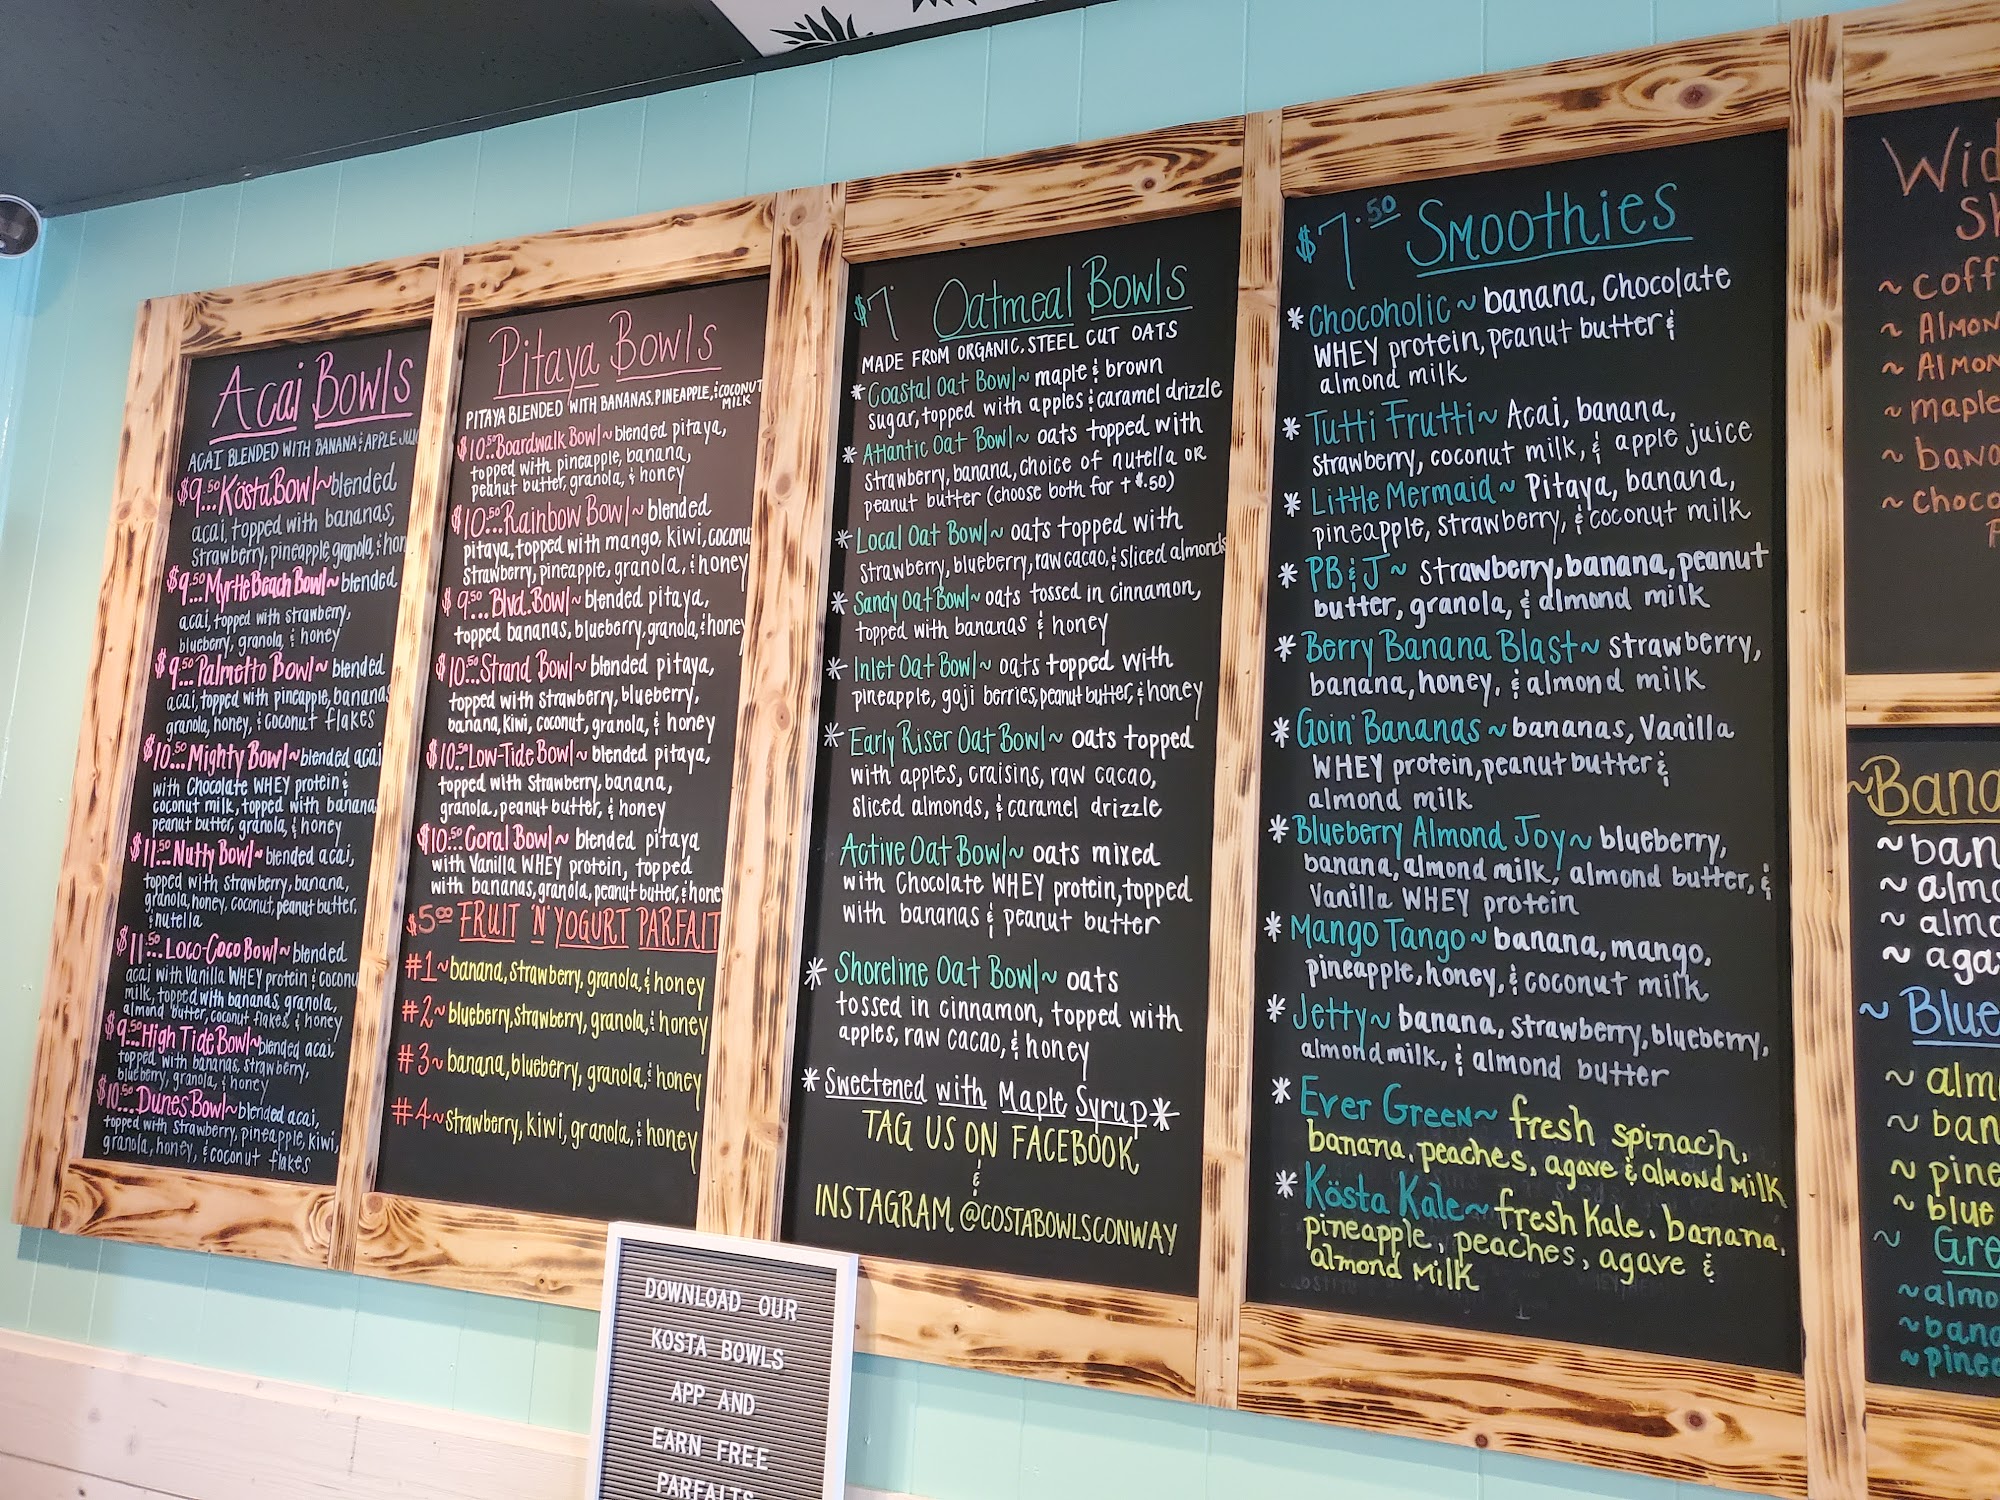 Acai Bowls
ACAI BLENDED WITH BANANA & APPLE
$9.50...Kösta Bowl~blended
acai, topped with bananas,
strawberry, pineapple granola, & hon
$9.50...Myrtle Beach Bowl~blended
acai, topped with strawberry,
blueberry, granola, & honey
$9.50...Palmetto Bowl~ blended
acai, topped with pineapple, bananas
granola, honey, & coconut flakes
$10.50...Mighty Bowl~blended acai
with Chocolate WHEY protein &
coconut milk, topped with banana
peanut butter, granola, & honey
$11.50...Nutty Bowl~blended acai,
topped with strawberry, banana,
granola, honey, coconut, peanut butter,
& nutella
$11.50...Loco-Coco Bowl~blended
acai with Vanilla WHEY protein & coconu
milk, topped with bananas, granola,
almond butter, coconut flakes, & honey
$9.50...High Tide Bowl~blended acai,
topped with bananas, strawberry,
blueberry, granola, & honey
$10.50...Dunes Bowl~blended acai,
topped with strawberry, pineapple, kiwi,
granola, honey, & coconut flakes
Pitaya Bowls
PITAYA BLENDED WITH BANANAS, PINEAPPLE, & COCONUT
MILK
$10.50...Boardwalk Bowl~blended pitaya,
topped with pineapple, banana,
peanut butter, granola, & honey
$10.50...Rainbow Bowl~ blended
pitaya, topped with mango, kiwi, coconu
strawberry, pineapple, granola, & honey
$9.50...Blvd. Bowl~ blended pitaya,
topped bananas, blueberry, granola, & honey
$10.50...Strand Bowl~ blended pitaya,
topped with strawberry, blueberry,
banana, kiwi, coconut, granola, & honey
$10.50...Low-Tide Bowl~ blended pitaya,
topped with strawberry, banana,
granola, peanut butter, & honey
$10.50...Coral Bowl~ blended pitaya
with Vanilla WHEY protein, topped
with bananas, granola, peanut butter, & honey
$5.00 FRUIT 'N' YOGURT PARFAIT
#1~banana, strawberry, granola, & honey
#2~ blueberry, strawberry, granola, & honey
#3~ banana, blueberry, granola, & honey
#4~strawberry, kiwi, granola, & honey
$7. Oatmeal Bowls
MADE FROM ORGANIC, STEEL CUT OATS
* Coastal Oat Bowl~ maple & brown
sugar, topped with apples & caramel drizzle
* Atlantic Oat Bowl~ oats topped with
strawberry, banana, choice of nutella OR
peanut butter (choose both for + $.50)
* Local Oat Bowl~ oats topped with
strawberry, blueberry, raw cacao, & sliced almonds
* Sandy Oat Bowl~ oats tossed in cinnamon,
topped with bananas & honey
* Inlet Oat Bowl~ oats topped with
pineapple, goji berries, peanut butter, & honey
* Early Riser Oat Bowl~ oats topped
with apples, craisins, raw cacao,
sliced almonds, & caramel drizzle
Active Oat Bowl~ oats mixed
with Chocolate WHEY protein, topped
with bananas & peanut butter
* Shoreline Oat Bowl~ oats
tossed in cinnamon, topped with
apples, raw cacao, & honey
* Sweetened with Maple Syrup *
TAG US ON FACEBOOK
&
INSTAGRAM @COSTABOWLSCONWAY
$7.50 Smoothies
* Chocoholic ~ banana, Chocolate
WHEY protein, peanut butter &
almond milk
* Tutti Frutti~ Acai, banana,
strawberry, coconut milk, & apple juice
* Little Mermaid ~ Pitaya, banana,
pineapple, strawberry, & coconut milk
* PB & J~ strawberry, banana, peanut
butter, granola, & almond milk
* Berry Banana Blast~ strawberry,
banana, honey, & almond milk
* Goin' Bananas ~ bananas, Vanilla
WHEY protein, peanut butter &
almond milk
* Blueberry Almond Joy~ blueberry,
banana, almond milk, almond butter, &
Vanilla WHEY protein
* Mango Tango~ banana, mango,
pineapple, honey, & coconut milk
* Jetty~ banana, strawberry, blueberry,
almond milk, & almond butter
* Ever Green~ fresh spinach,
banana, peaches, agave & almond milk
* Kösta Kale~ fresh kale, banana,
pineapple, peaches, agave &
almond milk
Wid
Sh
~ coff
~ Almon
~ Almon
~ maple
~ bana
~ choco
P
~Bana
~ ban
~ almo
~ almo
~ aga
~ Blue
~ alm
~ ban
~ pine
~ blue
~ Gre
~almo
~bana
~pinea
DOWNLOAD OUR
KOSTA BOWLS
APP AND
EARN FREE
PARFAITS